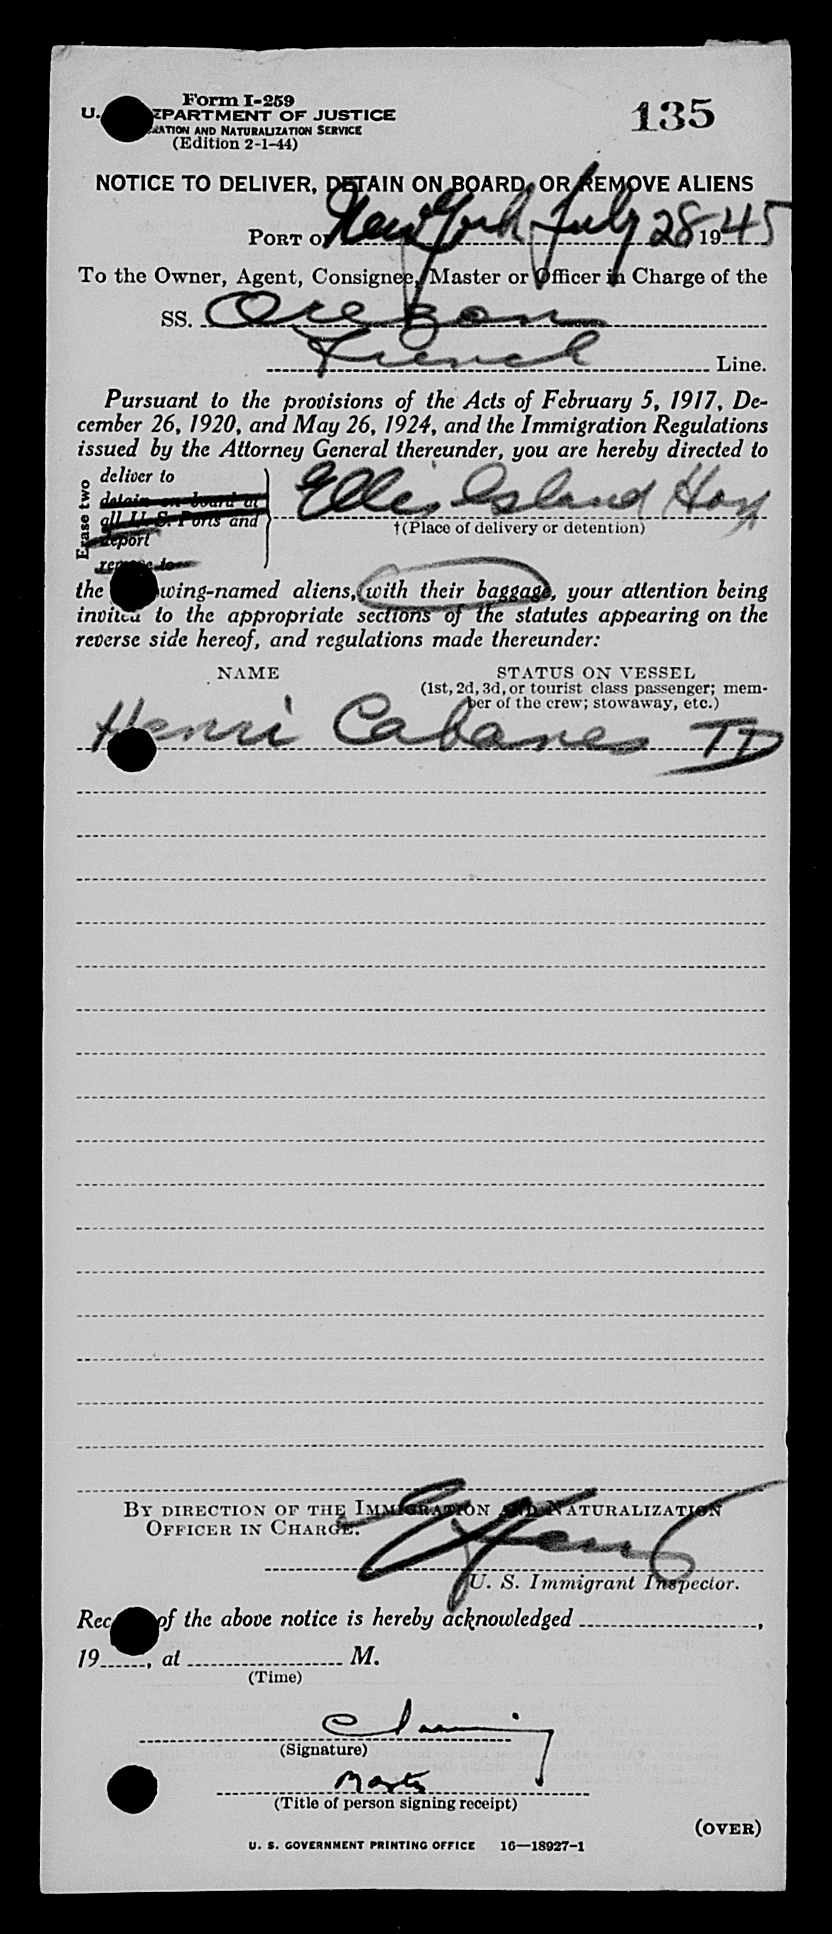 Form I-259
135
U. DEPARTMENT OF JUSTICE
AND NATURALIZATION SERVICE
(Edition 2-1-44)
NOTICE TO DELIVER, DETAIN ON BOARD, OR REMOVE ALIENS
PORT OF New York July 28 1945
To the Owner, Agent, Consignee, Master or Officer in Charge of the
SS. Oregon
French Line.
Pursuant to the provisions of the Acts of February 5, 1917, De-
cember 26, 1920, and May 26, 1924, and the Immigration Regulations
issued by the Attorney General thereunder, you are hereby directed to
Erase two
deliver to
detain on board at
all U. S. Ports and
deport
remove to
Ellis Island Hosp
†(Place of delivery or detention)
the wing-named aliens, with their baggage, your attention being
invited to the appropriate sections of the statutes appearing on the
reverse side hereof, and regulations made thereunder:
NAME STATUS ON VESSEL
(1st, 2d, 3d, or tourist class passenger; mem-
ber of the crew; stowaway, etc.)
Henri Cabanes TD
BY DIRECTION OF THE IMMIGRATION AND NATURALIZATION
OFFICER IN CHARGE.
U. S. Immigrant Inspector.
Rec of the above notice is hereby acknowledged ,
19 , at M.
(Time)
(Signature)
(Title of person signing receipt)
(OVER)
U. S. GOVERNMENT PRINTING OFFICE 16—18927-1